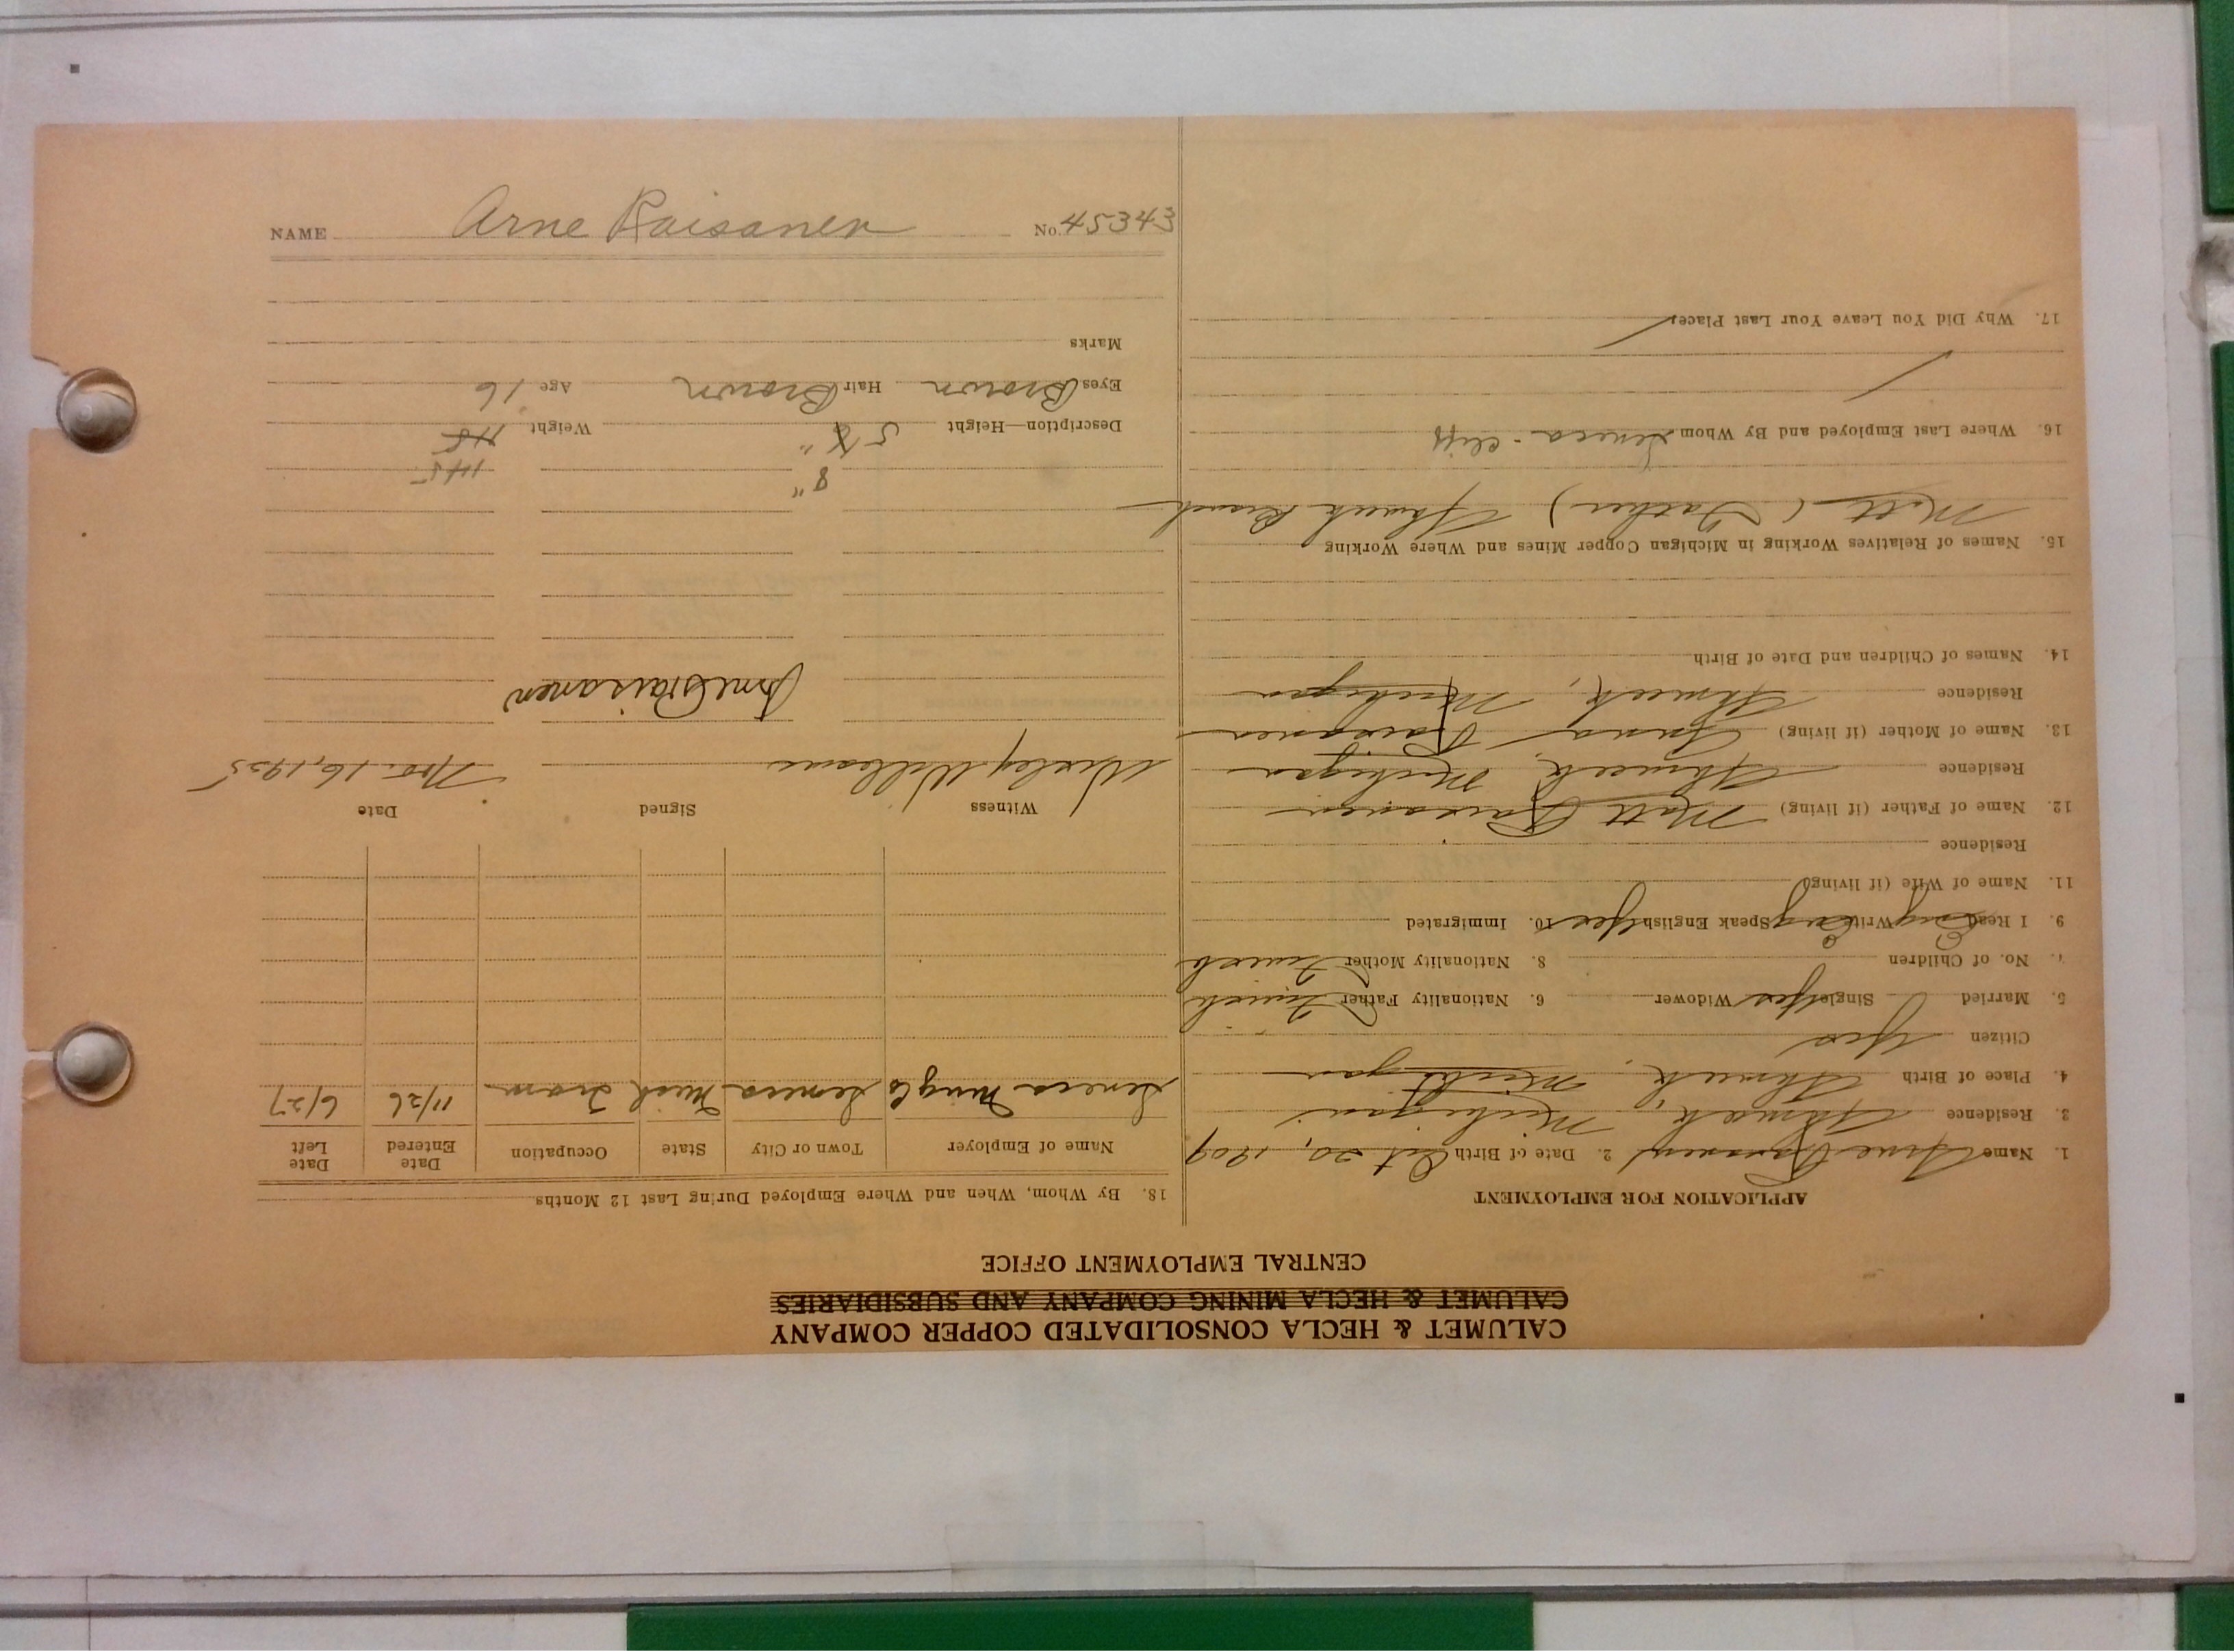 CALUMET & HECLA CONSOLIDATED COPPER COMPANY
CALUMET & HECLA MINING COMPANY AND SUBSIDIARIES
CENTRAL EMPLOYMENT OFFICE
APPLICATION FOR EMPLOYMENT
1. Name Arne Raisanen 2. Date of Birth Oct 20, 1909
3. Residence Ahmeek, Michigan
4. Place of Birth Ahmeek, Michigan
Citizen Yes
5. Married Single Yes Widower 6. Nationality Father Finnish
7. No. of Children 8. Nationality Mother Finnish
9. I Read Eng Write Eng Speak English Yes 10. Immigrated
11. Name of Wife (if living)
Residence
12. Name of Father (if living) Matt Raisanen
Residence Ahmeek, Michigan
13. Name of Mother (if living) Anna Raisanen
Residence Ahmeek, Michigan
14. Names of Children and Date of Birth
15. Names of Relatives Working in Michigan Copper Mines and Where Working
Matt (Father) Ahmeek Branch
16. Where Last Employed and By Whom Seneca - Cliff
17. Why Did You Leave Your Last Place
18. By Whom, When and Where Employed During Last 12 Months
Name of Employer Town or City State Occupation Date Entered Date Left
Seneca Mng Co Seneca Mich Tram 11/26 6/27
Witness Signed Date
Wesley Williams Nov. 16, 1925
Arne Raisanen
8" 145
Description—Height 5 8" Weight 115
Eyes Brown Hair Brown Age 16
Marks
NAME Arne Raisanen No. 45343